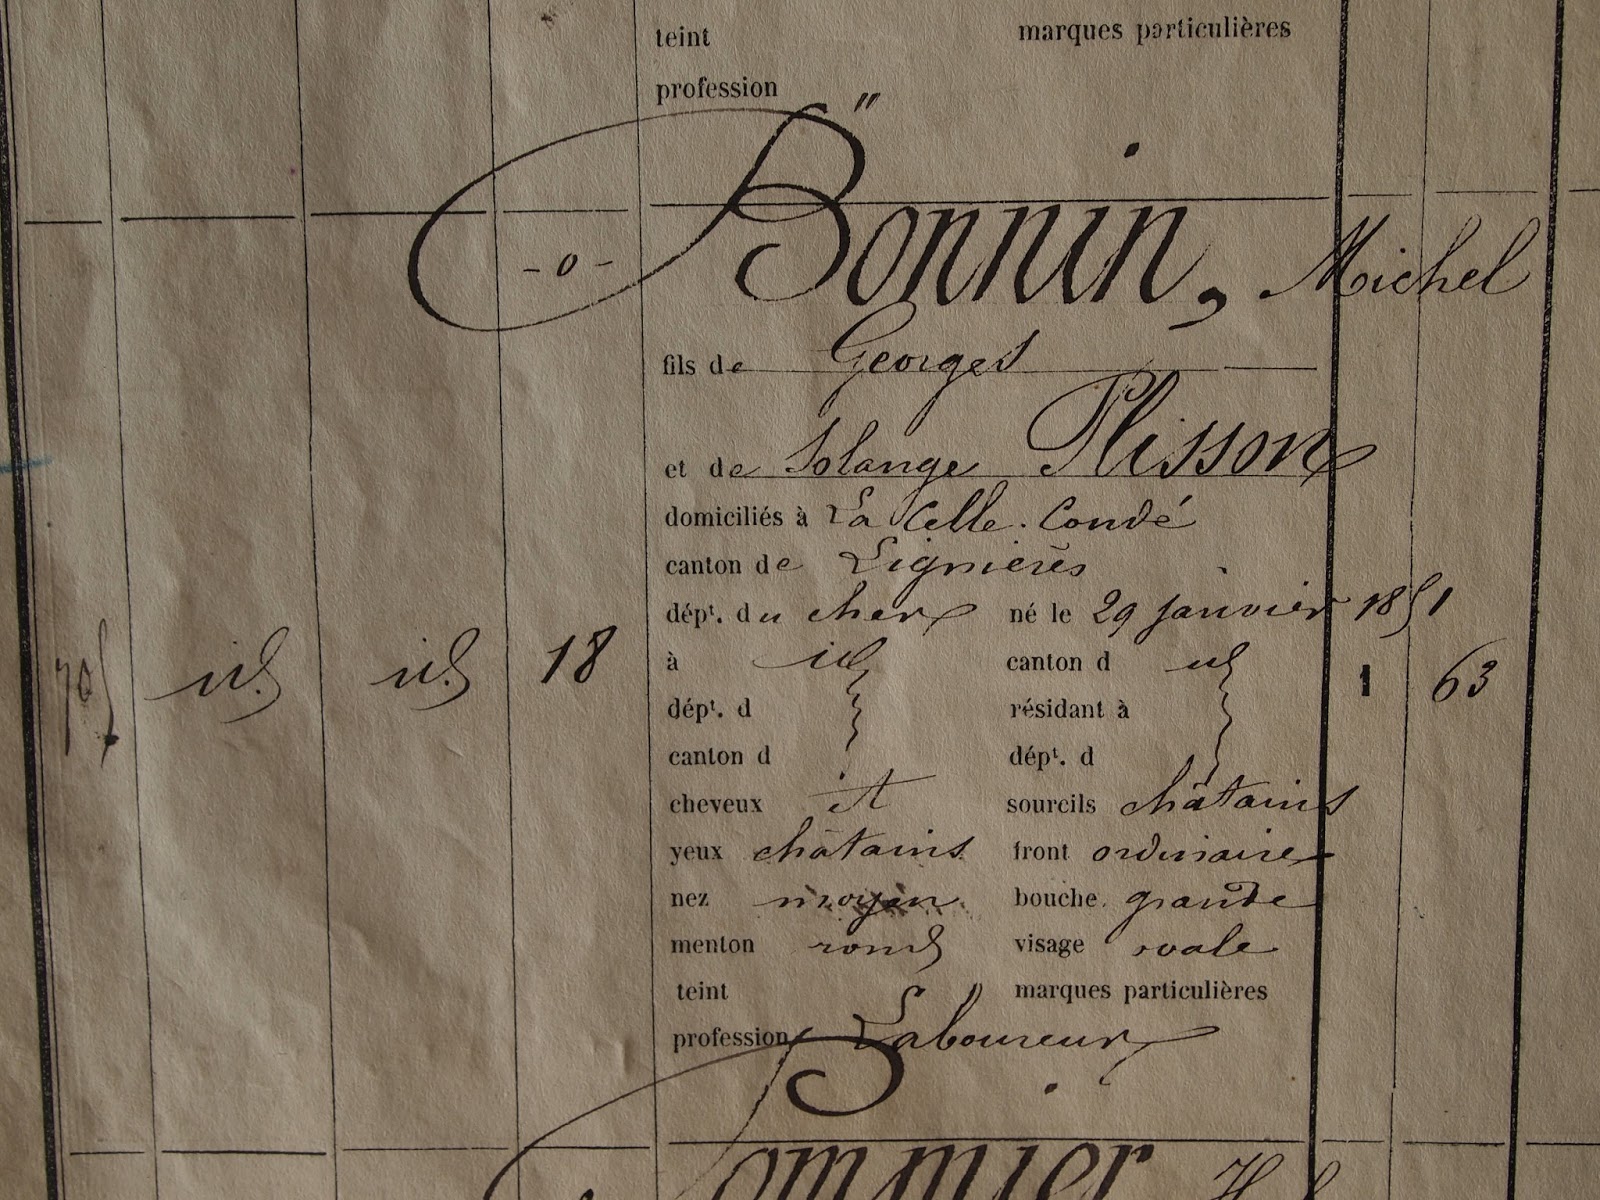 teint marques particulières
profession "
- o - Bonnin, Michel
fils de Georges
et de Solange Plisson
domiciliés à La Celle. Condé
canton de Lignières
dépt. du cher né le 29 janvier 1851
705 id. id. 18 à id canton d id 1 63
dépt. d résidant à
canton d dépt. d
cheveux et sourcils châtains
yeux châtains front ordinaire
nez moyen bouche grande
menton rond visage ovale
teint " marques particulières
profession Laboureur
ommier